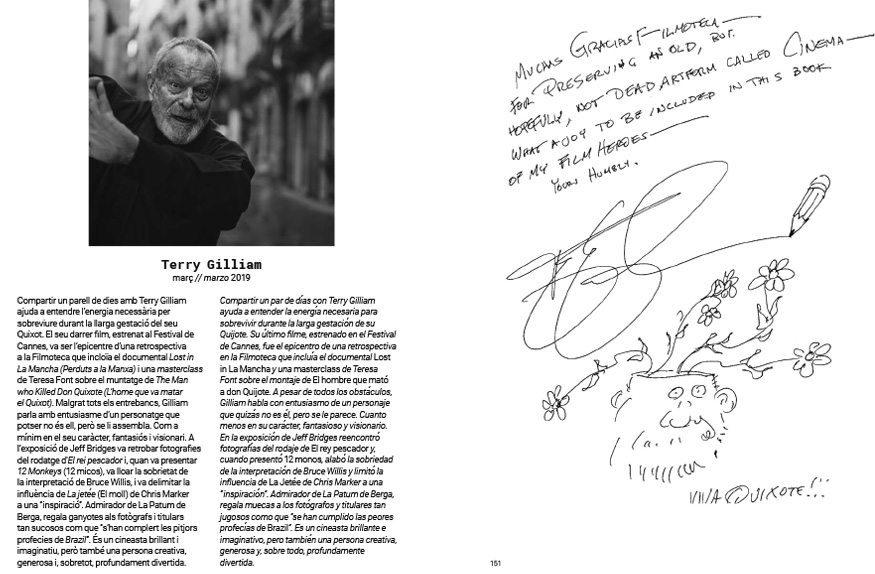 Terry Gilliam
març // marzo 2019
Compartir un parell de dies amb Terry Gilliam
ajuda a entendre l'energia necessària per
sobreviure durant la llarga gestació del seu
Quixot. El seu darrer film, estrenat al Festival de
Cannes, va ser l'epicentre d'una retrospectiva
a la Filmoteca que incloïa el documental Lost in
La Mancha (Perduts a la Manxa) i una masterclass
de Teresa Font sobre el muntatge de The Man
who Killed Don Quixote (L'home que va matar
el Quixot). Malgrat tots els entrebancs, Gilliam
parla amb entusiasme d'un personatge que
potser no és ell, però se li assembla. Com a
mínim en el seu caràcter, fantasiós i visionari. A
l'exposició de Jeff Bridges va retrobar fotografies
del rodatge d'El rei pescador i, quan va presentar
12 Monkeys (12 micos), va lloar la sobrietat de
la interpretació de Bruce Willis, i va delimitar la
influència de La jetée (El moll) de Chris Marker
a una "inspiració". Admirador de La Patum de
Berga, regala ganyotes als fotògrafs i titulars
tan sucosos com que "s'han complert les pitjors
profecies de Brazil". És un cineasta brillant i
imaginatiu, però també una persona creativa,
generosa i, sobretot, profundament divertida.
Compartir un par de días con Terry Gilliam
ayuda a entender la energía necesaria para
sobrevivir durante la larga gestación de su
Quijote. Su último filme, estrenado en el Festival
de Cannes, fue el epicentro de una retrospectiva
en la Filmoteca que incluía el documental Lost
in La Mancha y una masterclass de Teresa
Font sobre el montaje de El hombre que mató
a don Quijote. A pesar de todos los obstáculos,
Gilliam habla con entusiasmo de un personaje
que quizás no es él, pero se le parece. Cuanto
menos en su carácter, fantasioso y visionario.
En la exposición de Jeff Bridges reencontró
fotografías del rodaje de El rey pescador y,
cuando presentó 12 monos, alabó la sobriedad
de la interpretación de Bruce Willis y limitó la
influencia de La Jetée de Chris Marker a una
"inspiración". Admirador de La Patum de Berga,
regala muecas a los fotógrafos y titulares tan
jugosos como que "se han cumplido las peores
profecías de Brazil". Es un cineasta brillante e
imaginativo, pero también una persona creativa,
generosa y, sobre todo, profundamente
divertida.
MUCHAS GRACIAS FILMOTECA—
FOR PRESERVING AN OLD, BUT.
HOPEFULLY, NOT DEAD ARTFORM CALLED CINEMA—
WHAT A JOY TO BE INCLUDED IN THIS BOOK
OF MY FILM HEROES—
YOURS HUMBLY.
VIVA QUIXOTE!!!
151